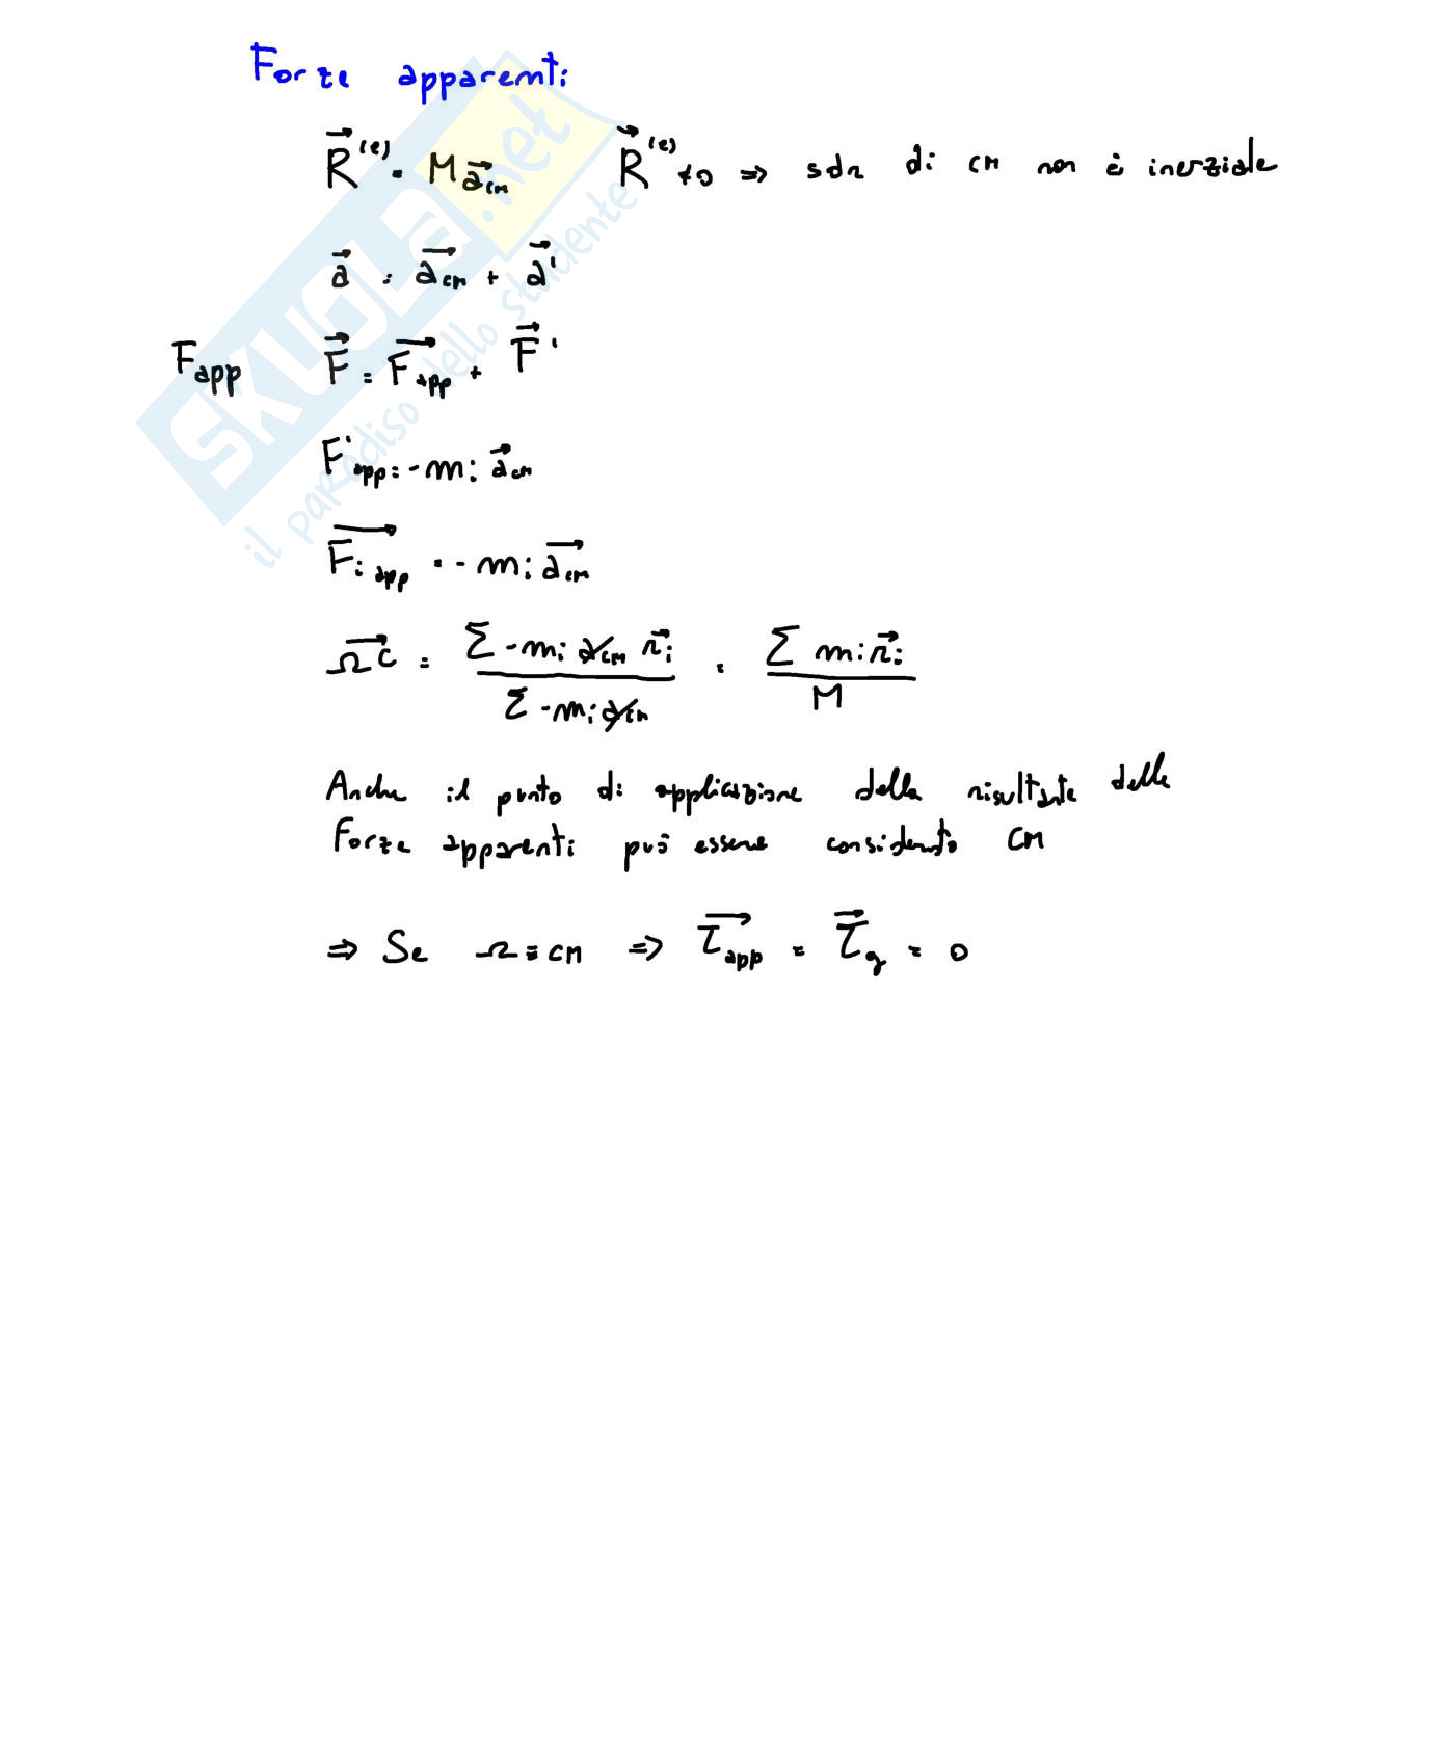 Forze apparenti
R⃗⁽ᵉ⁾ = M a⃗cm   R⃗⁽ᵉ⁾ ≠ 0 ⇒ sdr di CM non è inerziale
a⃗ = a⃗cm + a⃗'
Fapp   F⃗ = F⃗app + F⃗'
F'app = -mi a⃗cm
F⃗i app = -mi a⃗cm
ΩC⃗ = Σ -mi acm r⃗i / Σ -mi acm = Σ mi r⃗i / M
Anche il punto di applicazione della risultante delle
Forze apparenti può essere considerato CM
⇒ Se Ω ≡ CM ⇒ τ⃗app = τ⃗g = 0
SKUOLA.net
il paradiso dello studente